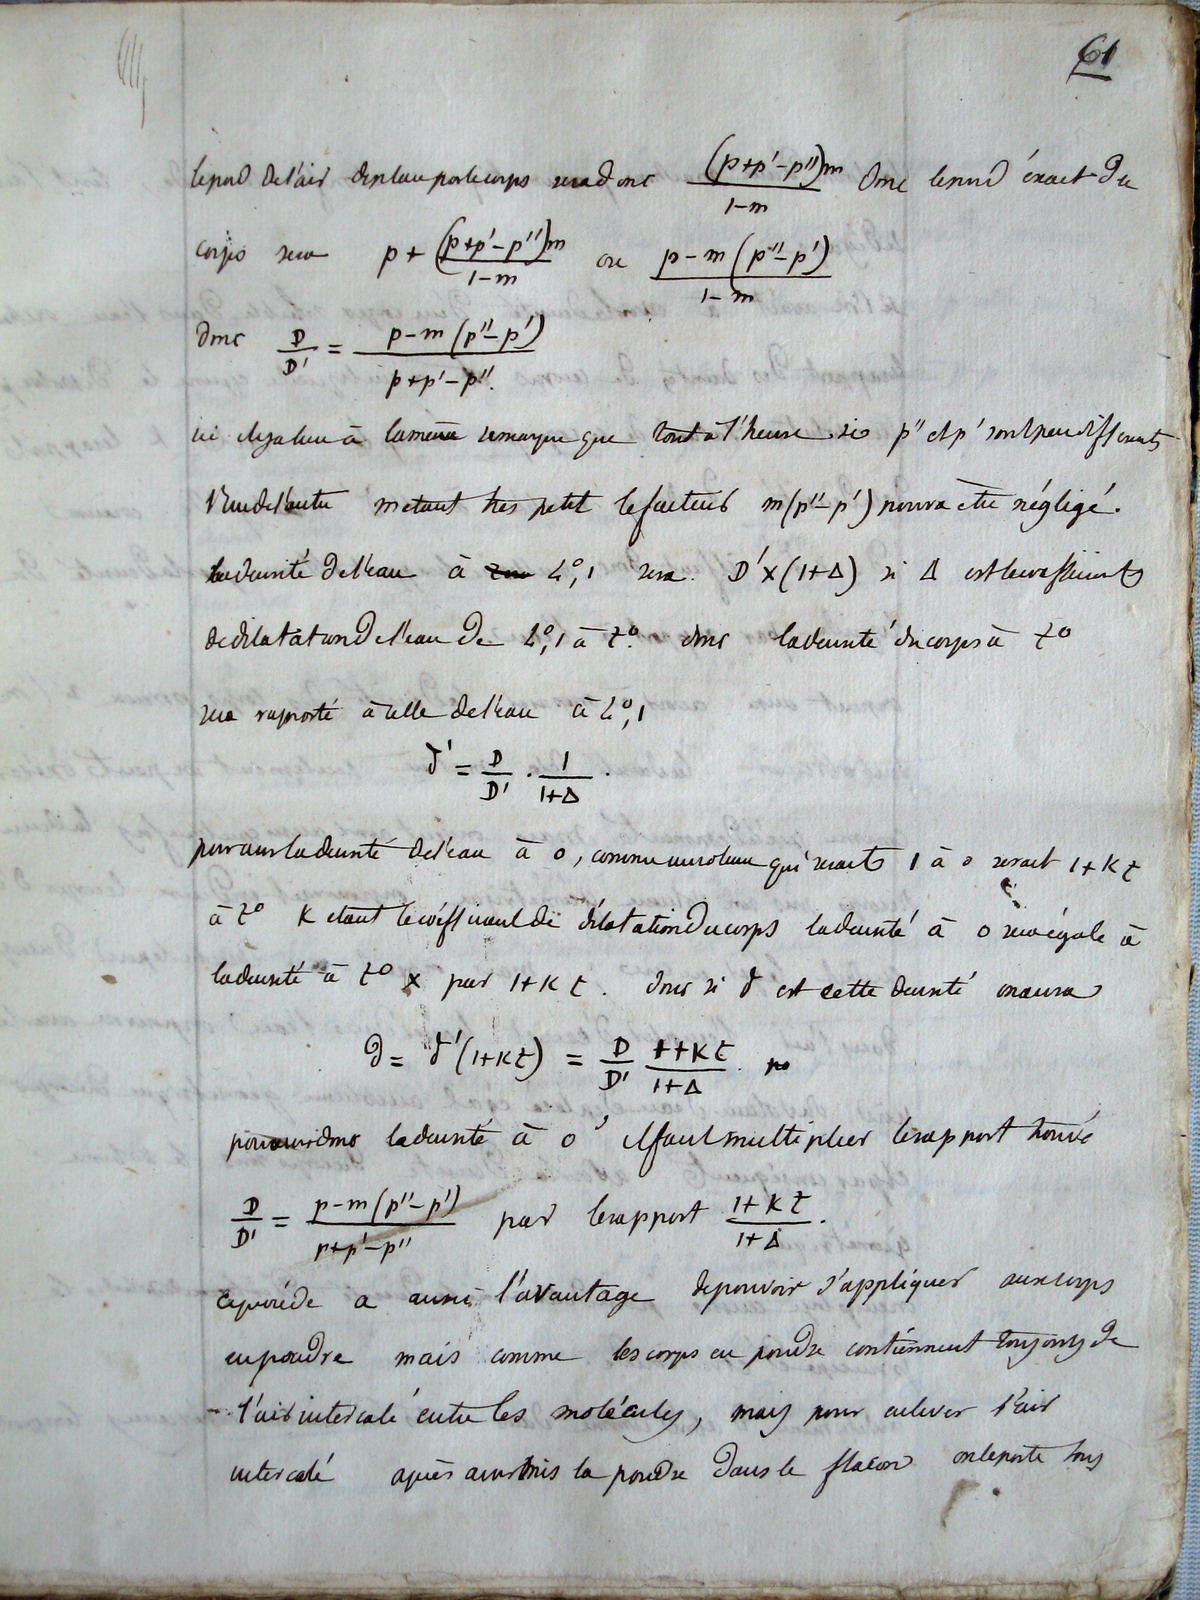 61
le poid de l'air deplacé par le corps sera donc (p+p'-p'')m / 1-m donc le poid éxact du
corps sera p + (p+p'-p'')m / 1-m ou p-m(p''-p') / 1-m
donc D/D' = p-m(p''-p') / p+p'-p''.
ici il y a lieu à la même remarque que tout à l'heure si p'' et p' sont peu differents
l'un de l'autre m etant très petit le facteur m(p''-p') pourra etre négligé.
la densité de l'eau à 4°,1 sera D'×(1+Δ) si Δ est le coefficient
de dilatation de l'eau de 4°,1 à t°. donc la densité du corps à t°
sera rapporté à celle de l'eau à 4°,1
δ' = D/D' . 1/1+Δ .
pour avoir la densité de l'eau à 0, comme un volume qui serait 1 à 0 serait 1+Kt
à t° K etant le coéfficient de dilatation du corps la densité à 0 sera égale à
la densité à t° × par 1+Kt. donc si δ est cette densité on aura
δ = δ'(1+Kt) = D/D' 1+Kt / 1+Δ.
pour avoir donc la densité à 0° il faut multiplier le rapport trouvé
D/D' = p-m(p''-p') / p+p'-p'' par le rapport 1+Kt / 1+Δ.
ce procéde a aussi l'avantage de pouvoir s'appliquer aux corps
en poudre mais comme les corps en poudre contiennent toujours de
l'air intercalé entre les molécules, mais pour enlever l'air
intercalé après avoir mis la poudre dans le flacon on le porte sous